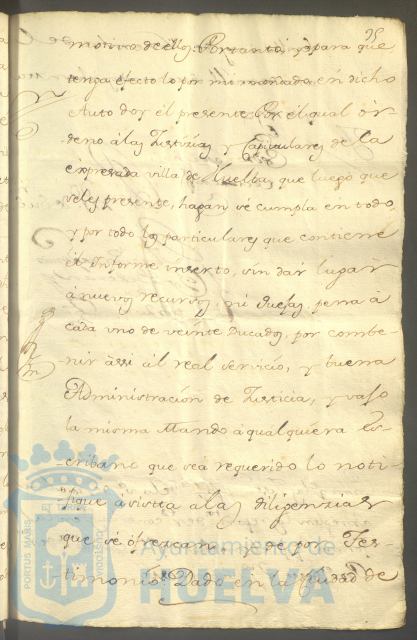 95
motivo de ello. Portanto, y para que
tenga efecto lo por mi mandado en dicho
Auto doy el presente Por el qual or-
deno á las Justizias y Capitulares de la
expresada villa de Huelba, que luego que
veles presente, hagan se cumpla en todo,
y por todo los particulares que contiene
el Informe inserto, sin dar lugar
à nuevos recursos, ni quejas, pena à
cada uno de veinte Ducados, por combe-
nir àssi àl real servicio, y buena
Administración de Justicia, y vajo
la misma Mando à qualquiera Es-
cribano que sea requerido lo noti-
fique asista á las diligenzias
que se ofrezcan y de por Tes-
timonio. Dado en la Ciudad de
PORTUS MARIS
Ayuntamiento de
HUELVA